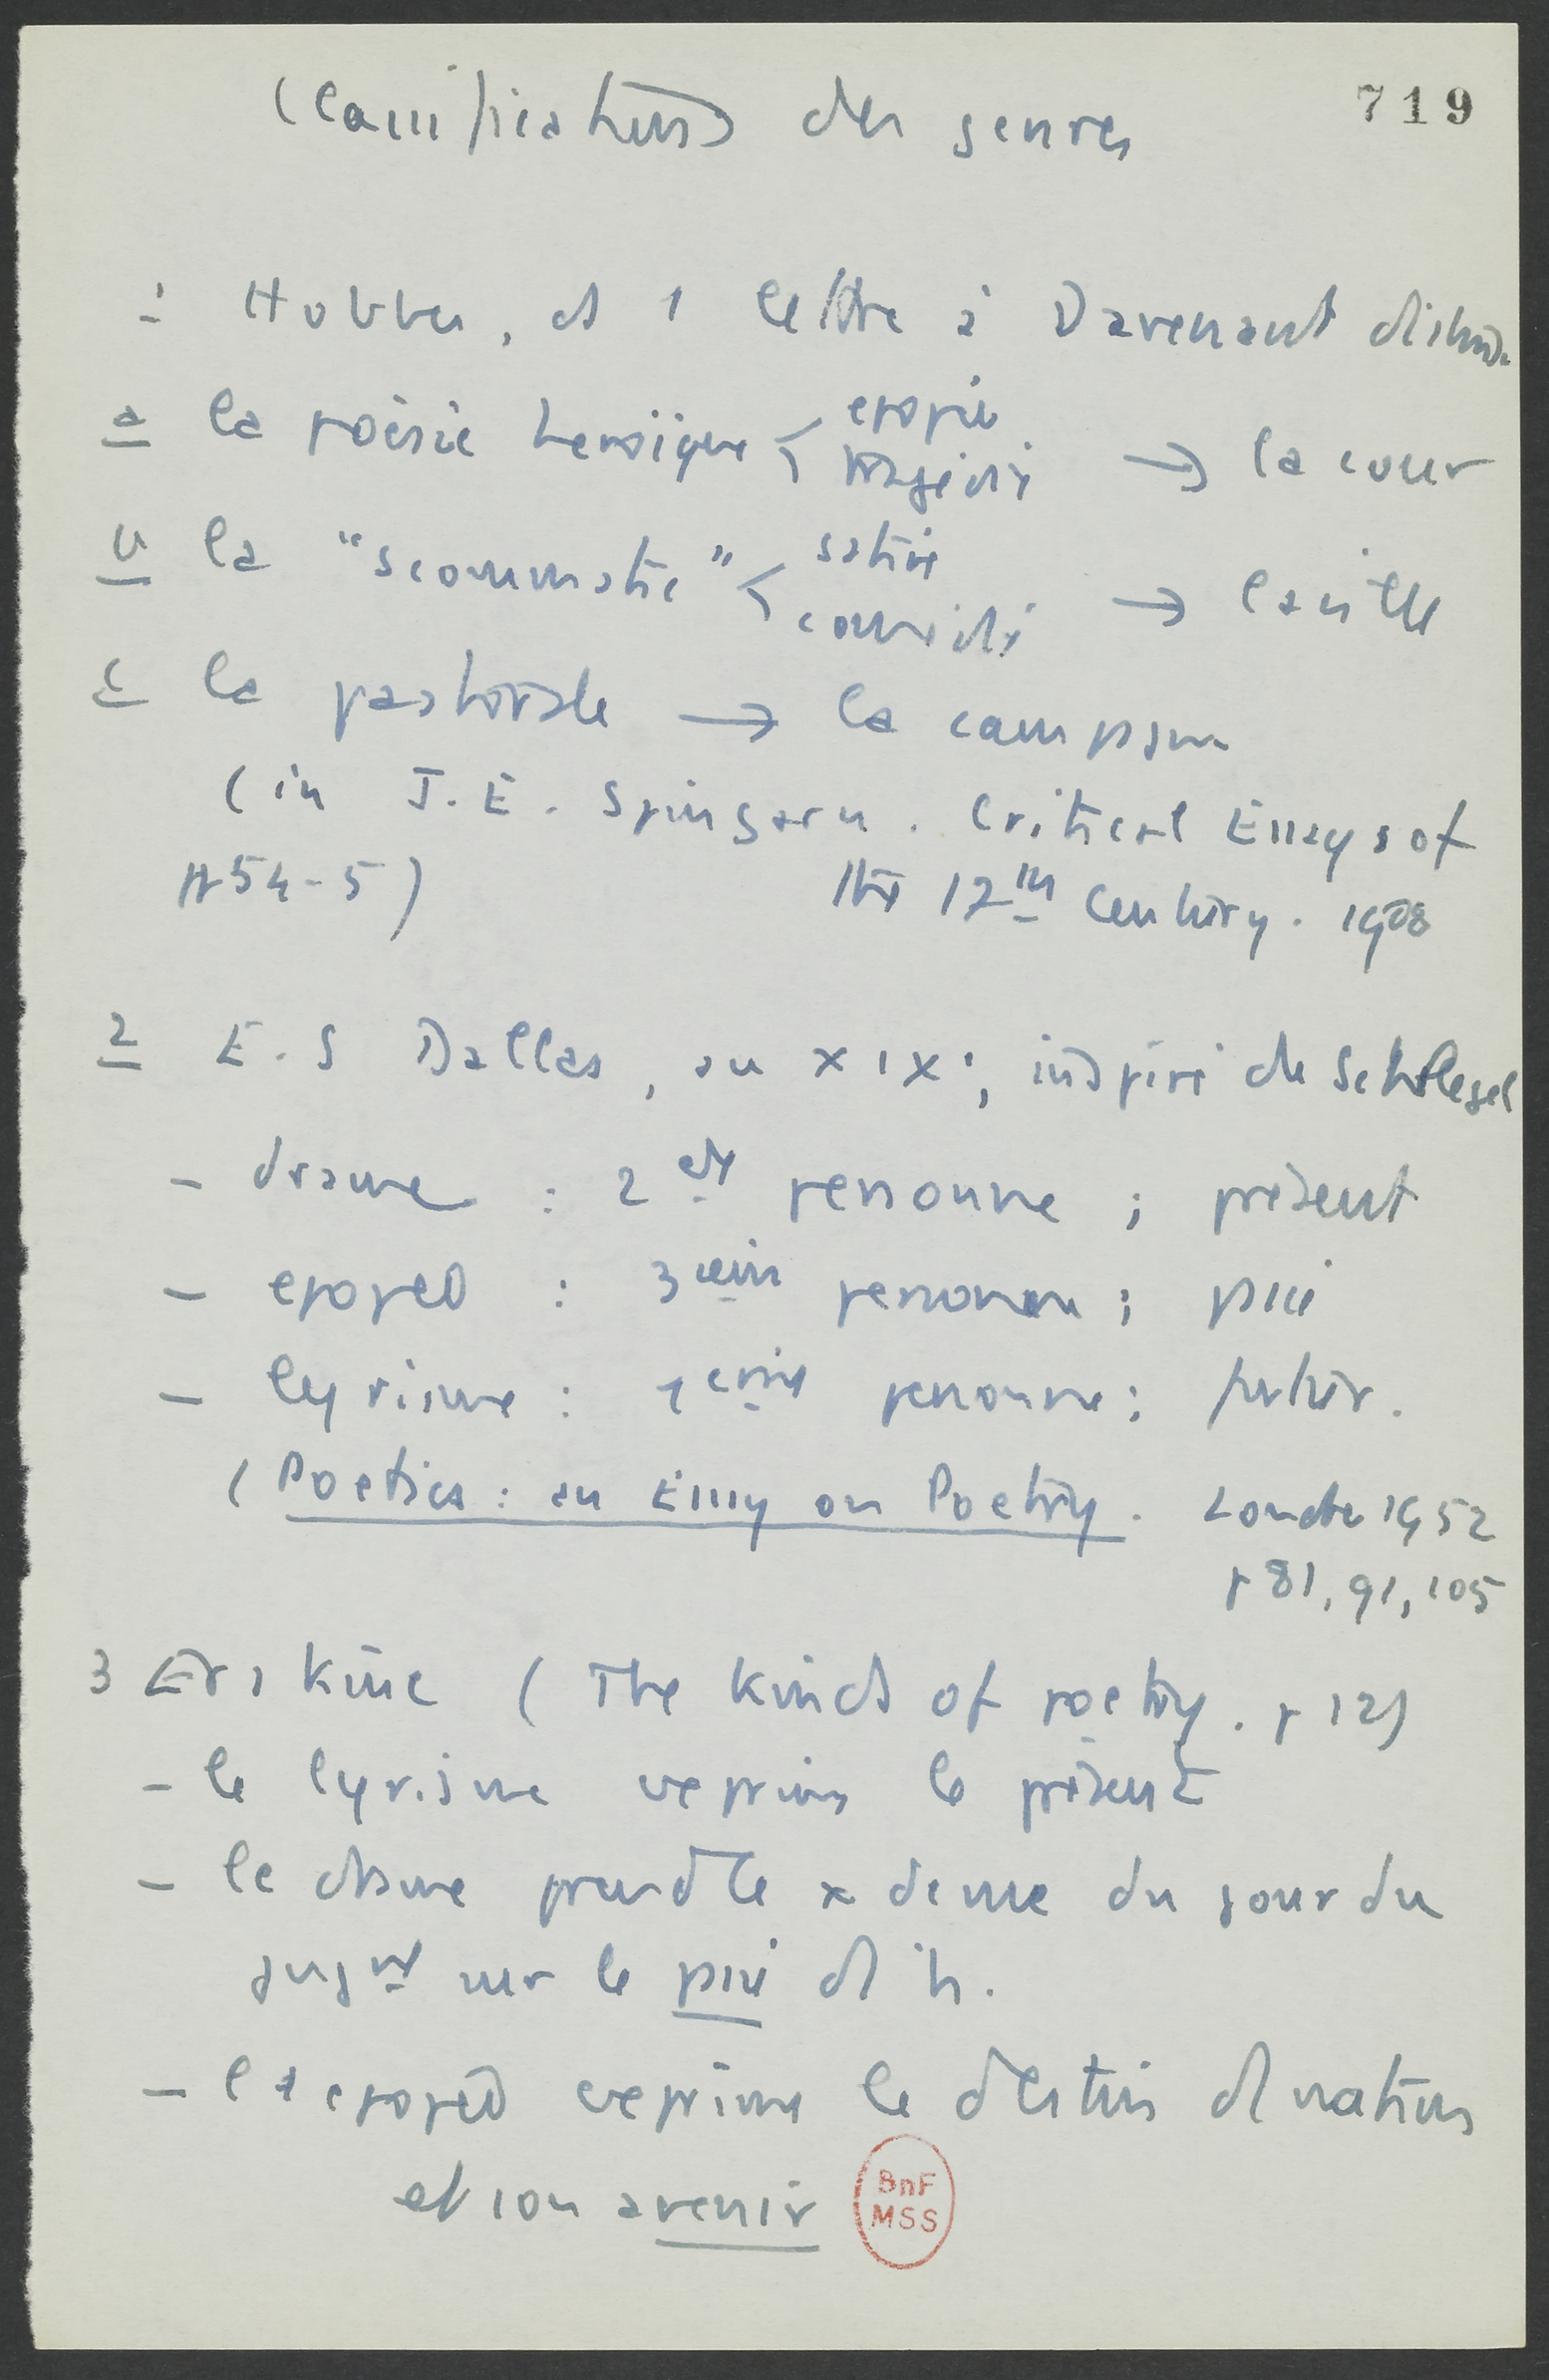 719
Classification des genres
1 Hobbes, ds 1 lettre à Davenant disting.
a la poésie heroïque < epopée tragédie → la cour
b la "scommatic" < satire comédie → la ville
c la pastorale → la campagne
(in J.E. Spingarn. Critical Essays of
the 17th Century. 1908
pp 54-5)
2 E.S Dallas, au XIXe, inspiré de Schlegel
- drame : 2de personne ; présent
- epopée : 3ième personne ; passé
- lyrisme : 1ère personne ; futur.
(Poetics : an Essay on Poetry. Londres 1952
p 81, 91, 105
3 Erskine (The Kinds of poetry. p 12)
- le lyrisme exprime le présent
- le drame prend le x deme du jour du
jugnt sur le passé d h.
- l epopée exprime le destin d nations
et son avenir
BnF
MSS